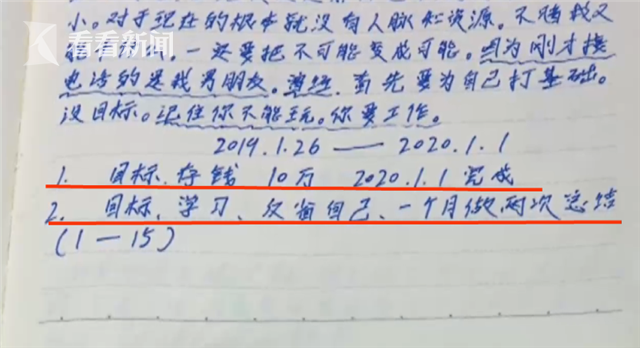 看看新闻
小。对于现在的根本就没有人脉和资源。不赌教又
一定要把不可能变成可能。因为刚才接
电话的是我男朋友。曾经,首先要为自己打基础。
没目标。记住你不能玩。你要工作。
2019.1.26 — 2020.1.1
1. 目标、存钱 10万 2020.1.1 完成
2. 目标、学习、反省自己、一个月做两次总结
(1—15)